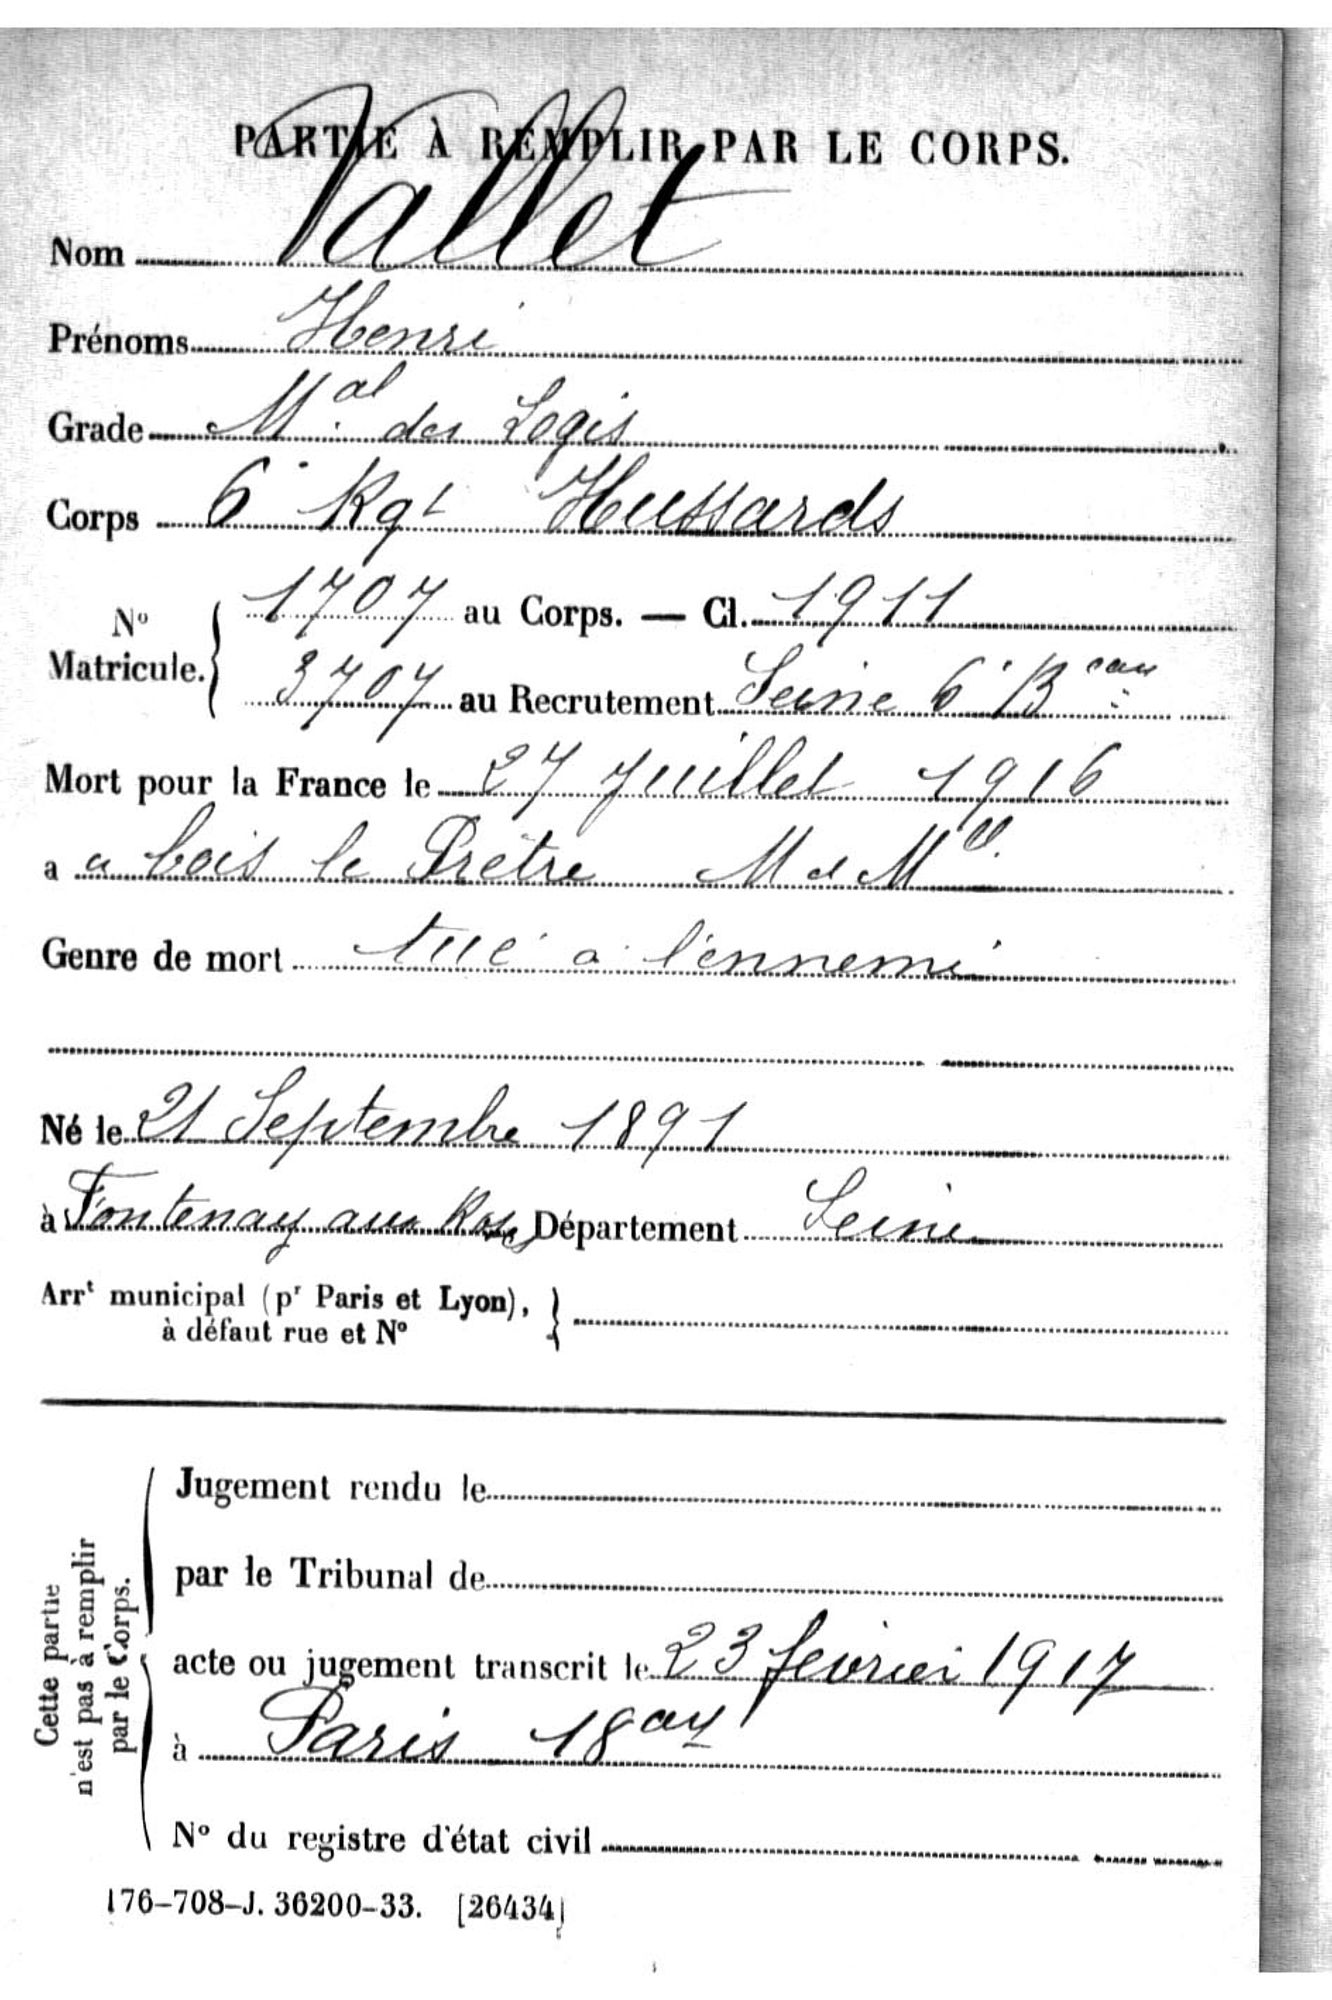 PARTIE À REMPLIR PAR LE CORPS.
Nom Vallet
Prénoms Henri
Grade Mal des Logis
Corps 6e Rgt Hussards
No Matricule. { 1707 au Corps. — Cl. 1911
3707 au Recrutement Seine 6e Beau
Mort pour la France le 27 Juillet 1916
a a bois le Prêtre M et Mlle
Genre de mort tué a l'ennemi
Né le 21 Septembre 1891
à Fontenay aux Roses Département Seine
Arrt municipal (pr Paris et Lyon),
à défaut rue et No
Cette partie n'est pas à remplir par le Corps.
Jugement rendu le
par le Tribunal de
acte ou jugement transcrit le 23 février 1917
à Paris 18 arrt
No du registre d'état civil
176-708-J. 36200-33. [26434]